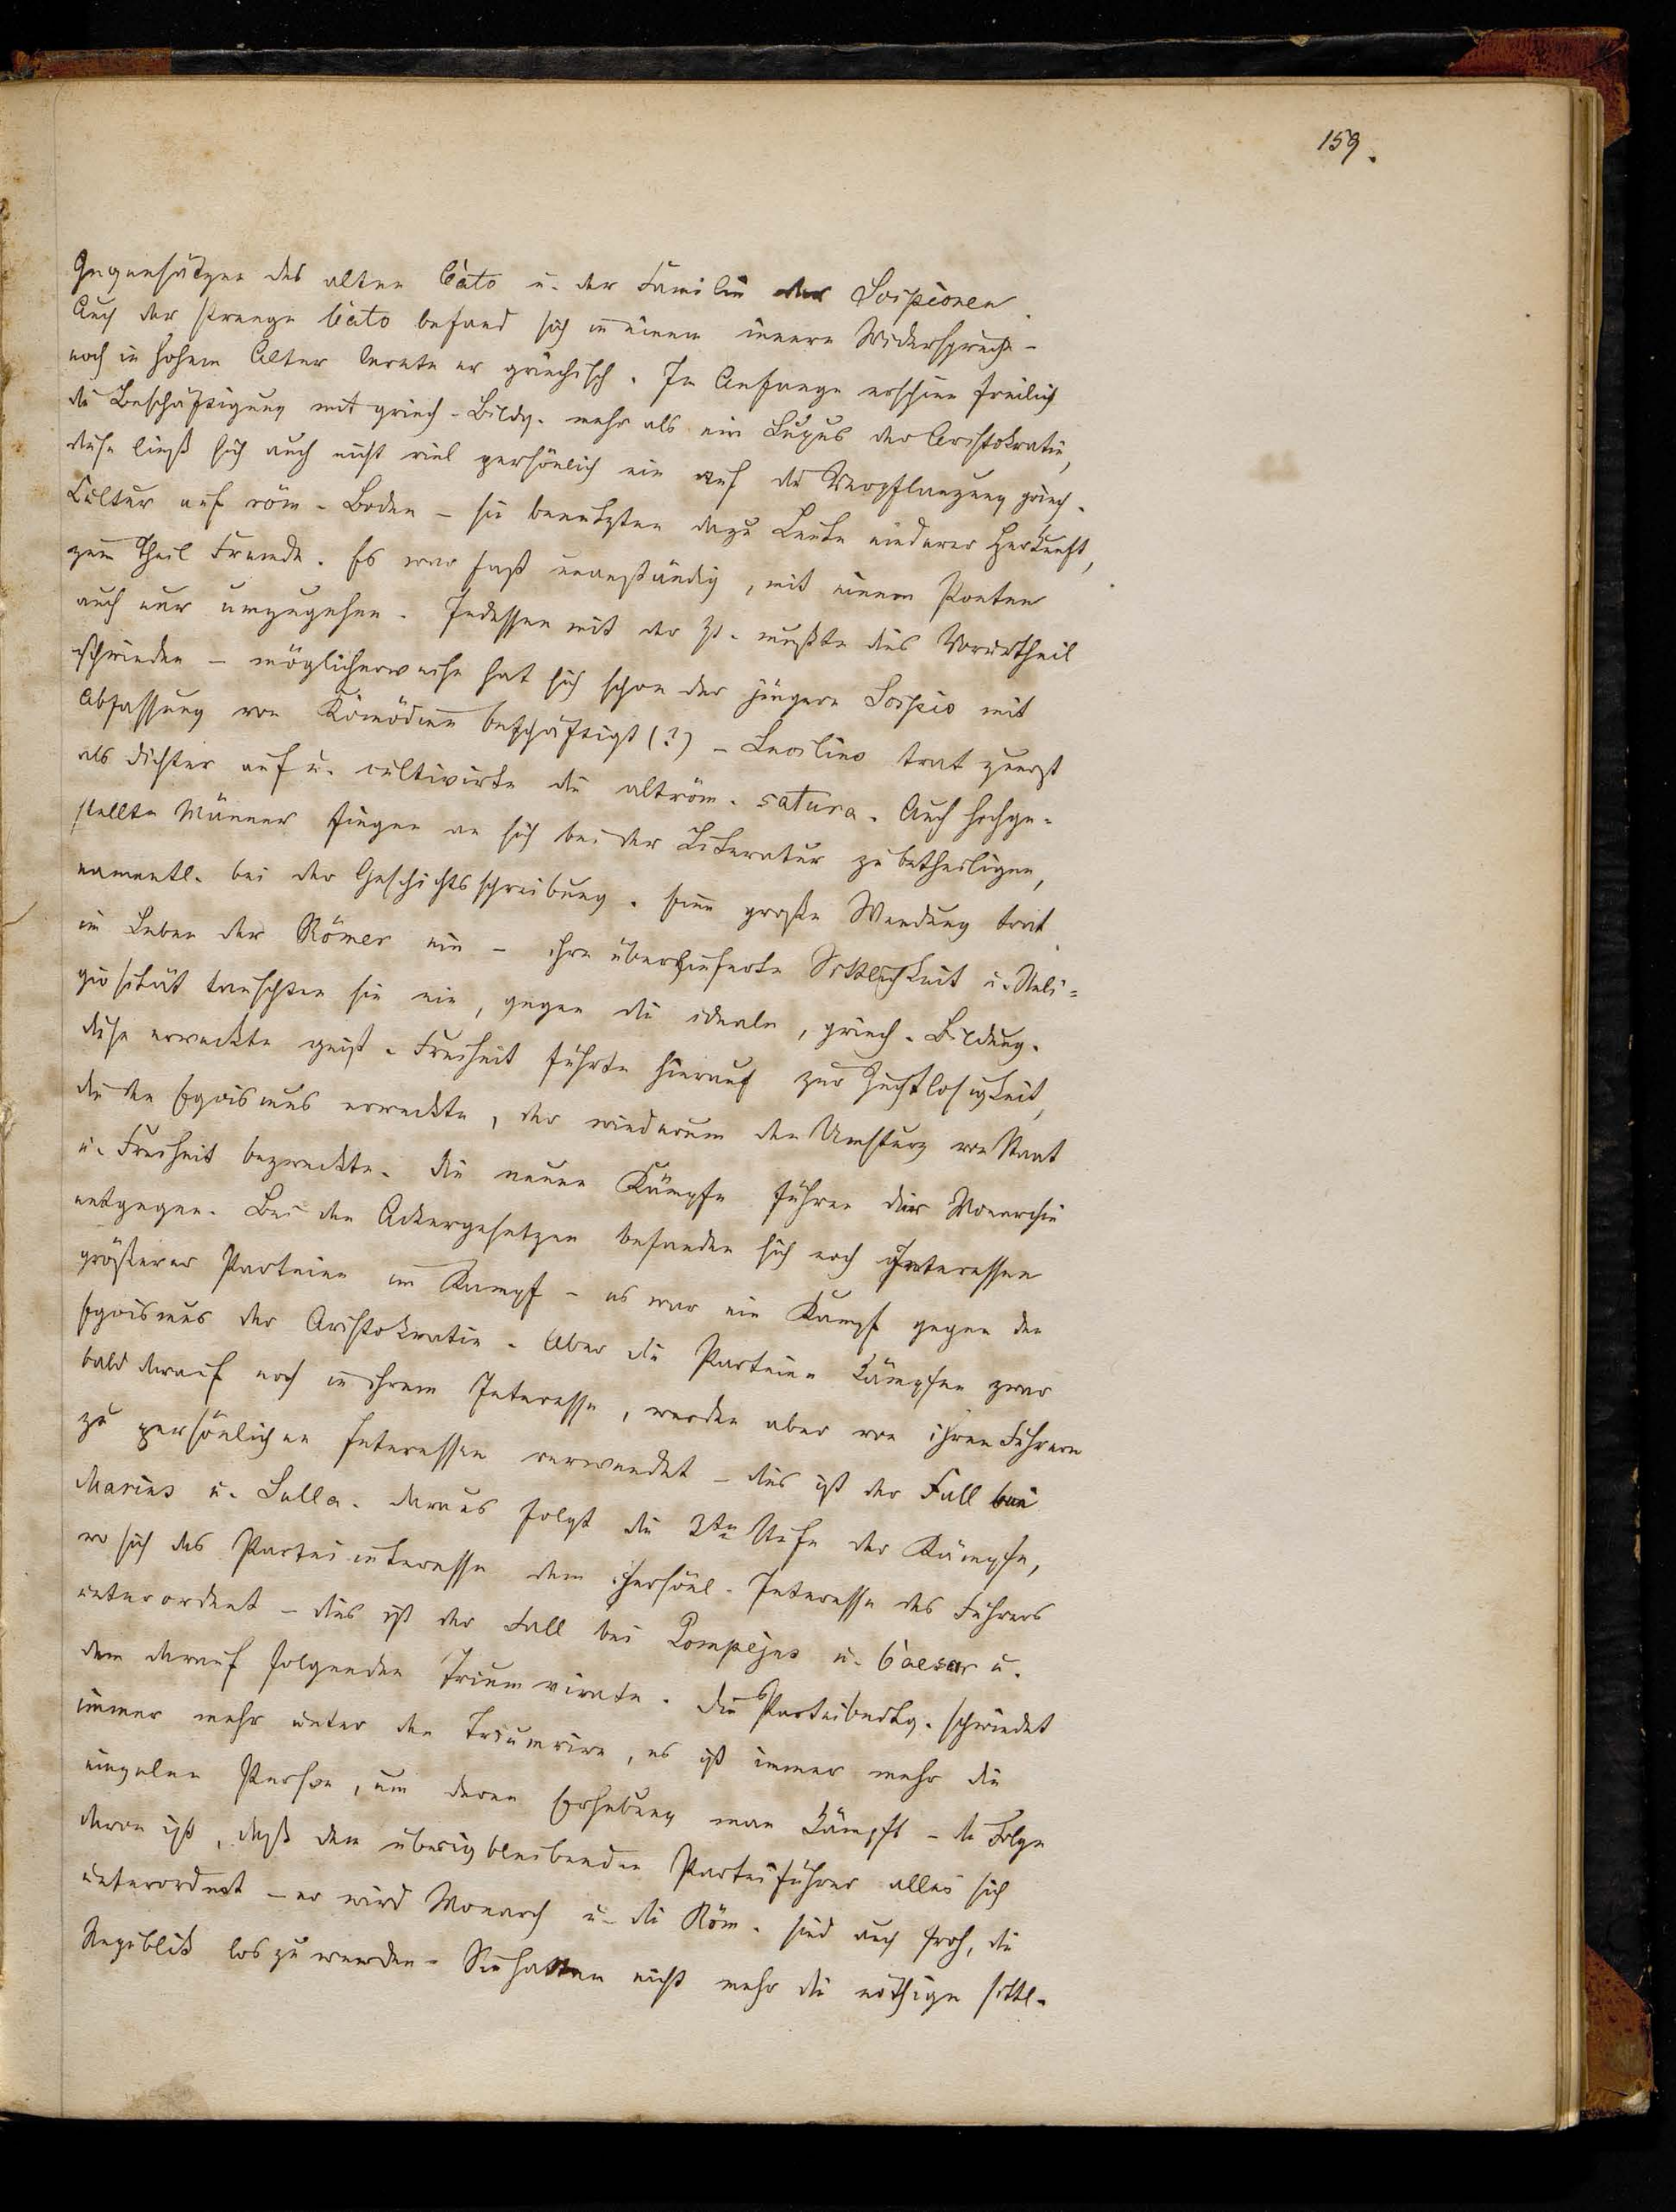 159.
Gegensätzen des alten Cato u. der Familie der Scipionen.
Auch der strenge Cato befand sich in einem innern Widerspruch –
noch in hohem Alter lernte er griechisch. Im Anfange erschien freilich
die Beschäftigung mit griech. Bildg. mehr als ein Luxus der Aristokratie,
diese ließ sich auch nicht viel persönlich ein auf die Verpflanzung griech.
Cultur auf röm. Boden – sie benutzten dazu Leute niederer Herkunft,
zum Theil Fremde. Es war fast unanständig, mit einem Poeten
auch nur umzugehen. Indessen mit der Zt. mußte dies Vorurtheil
schwinden – möglicherweise hat sich schon der jüngere Scipio mit
Abfassung von Komödien beschäftigt (?) – Lucilius trat zuerst
als Dichter auf u. cultivirte die altröm. satura. Auch hochge-
stellte Männer fingen an sich bei der Literatur zu betheiligen,
namentl. bei der Geschichtsschreibung. Eine große Wendung trat
im Leben der Römer ein – ihre überlieferte Sittlichkeit u. Reli-
giosität tauschten sie ein, gegen die ideale, griech. Bildung.
Diese erweckte geist. Freiheit führte hierauf zur Zuchtlosigkeit,
die den Egoismus erweckte, der wiederum den Umsturz von Staat
u. Freiheit bezweckte. Die neuen Kämpfe führen der Monarchie
entgegen. Bei den Ackergesetzen befanden sich noch Interessen
größerer Parteien im Kampf – es war ein Kampf gegen den
Egoismus der Aristokratie. Aber die Parteien kämpfen zwar
bald darauf noch in ihrem Interesse, werden aber von ihren Führern
zu persönlichen Interessen verwendet – dies ist der Fall bei
Marius u. Sulla. Daraus folgt die 3te Stufe der Kämpfe,
wo sich das Parteiinteresse dem persönl. Interesse des Führers
unterordnet – dies ist der Fall bei Pompejus u. Caesar u.
dem darauf folgenden Triumvirate. Die Parteibedtg. schwindet
immer mehr unter den Triumvirn, es ist immer mehr die
einzelne Person, um deren Erhebung man kämpft – die Folge
davon ist, daß dem übrigbleibenden Parteiführer alles sich
unterordnet – er wird Monarch u. die Röm. sind auch froh, die
Republik los zu werden. Sie hatten nicht mehr die nöthige sittl.